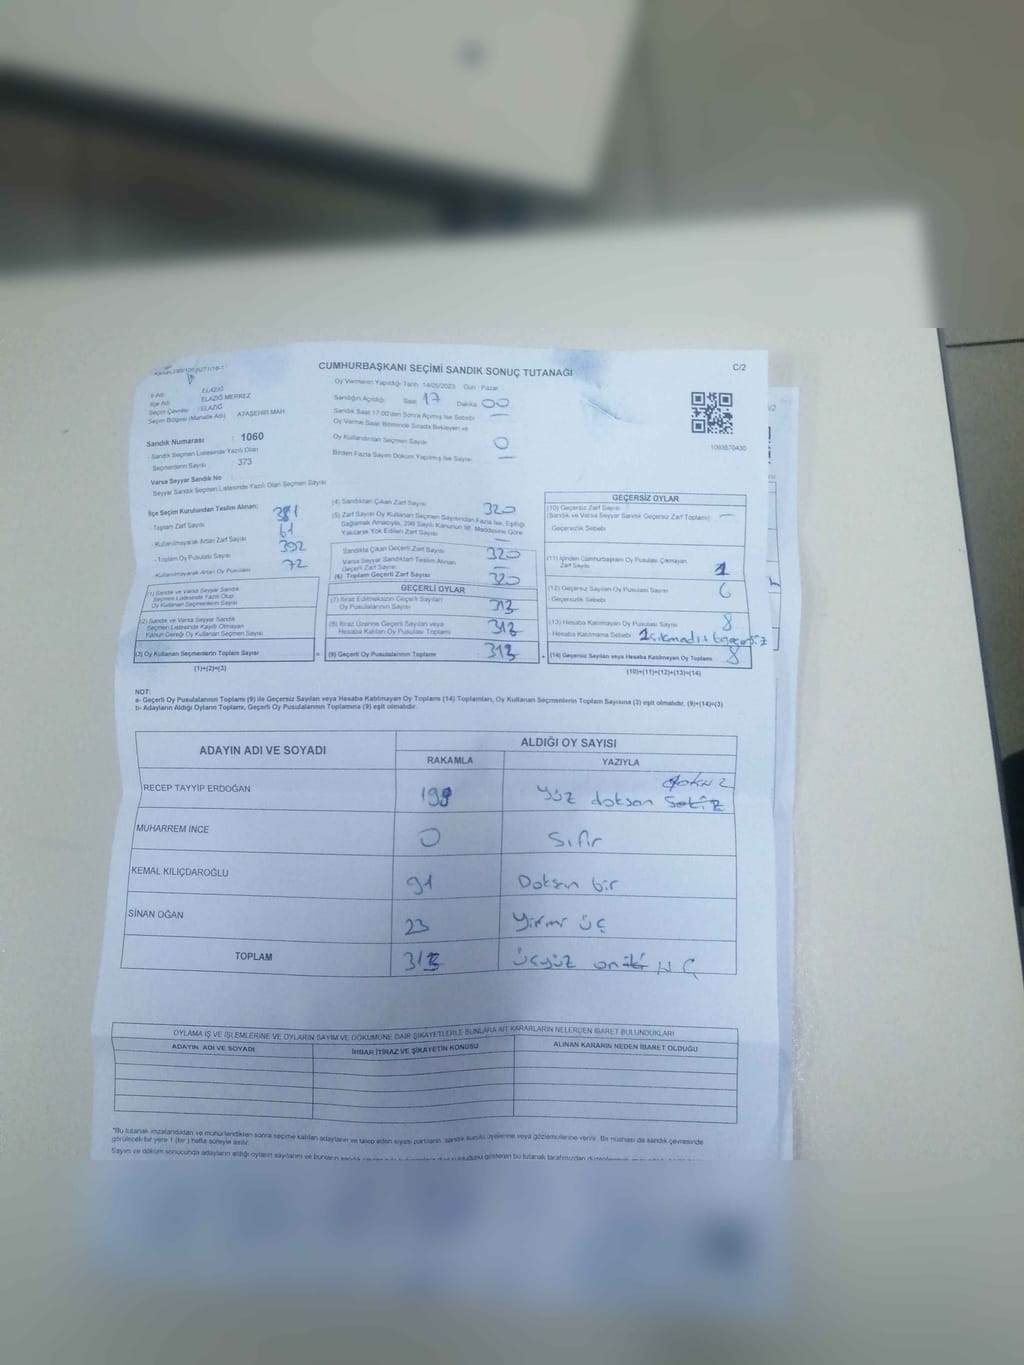 CUMHURBAŞKANI SEÇİMİ SANDIK SONUÇ TUTANAĞI
C/2
Oy Vermenin Yapıldığı Tarih 14/05/2023 Gün Pazar
İl Adı : ELAZIĞ
İlçe Adı : ELAZIĞ MERKEZ
Seçim Çevresi : ELAZIĞ
Seçim Bölgesi (Mahalle Adı) ATAŞEHİR MAH
Sandık Numarası : 1060
Sandık Seçmen Listesinde Yazılı Olan
Seçmenlerin Sayısı : 373
Varsa Seyyar Sandık No
Seyyar Sandık Seçmen Listesinde Yazılı Olan Seçmen Sayısı
Sandığın Açıldığı Saat 17 Dakika 00
Sandık Saat 17.00'den Sonra Açılmış İse Sebebi
Oy Verme Saati Bitiminde Sırada Bekleyen ve
Oy Kullandırılan Seçmen Sayısı 0
Birden Fazla Sayım Döküm Yapılmış İse Sayısı
İlçe Seçim Kurulundan Teslim Alınan;
Toplam Zarf Sayısı 381
Kullanılmayarak Artan Zarf Sayısı 61
Toplam Oy Pusulası Sayısı 392
Kullanılmayarak Artan Oy Pusulası 72
(1) Sandık ve Varsa Seyyar Sandık
Seçmen Listesinde Yazılı Olup
Oy Kullanan Seçmenlerin Sayısı
(2) Sandık ve Varsa Seyyar Sandık
Seçmen Listesinde Kayıtlı Olmayan
Kanun Gereği Oy Kullanan Seçmen Sayısı
(3) Oy Kullanan Seçmenlerin Toplam Sayısı
(1)+(2)=(3)
(4) Sandıktan Çıkan Zarf Sayısı 320
(5) Zarf Sayısı Oy Kullanan Seçmen Sayısından Fazla İse, Eşitliği
Sağlamak Amacıyla, 298 Sayılı Kanunun 98. Maddesine Göre
Yakılarak Yok Edilen Zarf Sayısı
Sandıkta Çıkan Geçerli Zarf Sayısı 320
Varsa Seyyar Sandıktan Teslim Alınan
Geçerli Zarf Sayısı
(6) Toplam Geçerli Zarf Sayısı 320
GEÇERLİ OYLAR
(7) İtiraz Edilmeksizin Geçerli Sayılan
Oy Pusulalarının Sayısı 313
(8) İtiraz Üzerine Geçerli Sayılan veya
Hesaba Katılan Oy Pusulası Toplamı 313
(9) Geçerli Oy Pusulalarının Toplamı 313
GEÇERSİZ OYLAR
(10) Geçersiz Zarf Sayısı
(Sandık ve Varsa Seyyar Sandık Geçersiz Zarf Toplamı)
Geçersizlik Sebebi
(11) İçinden Cumhurbaşkanı Oy Pusulası Çıkmayan
Zarf Sayısı 1
(12) Geçersiz Sayılan Oy Pusulası Sayısı 6
Geçersizlik Sebebi
(13) Hesaba Katılmayan Oy Pusulası Sayısı 8
Hesaba Katılmama Sebebi
(14) Geçersiz Sayılan veya Hesaba Katılmayan Oy Toplamı 8
(10)+(11)+(12)+(13)=(14)
NOT:
a- Geçerli Oy Pusulalarının Toplamı (9) ile Geçersiz Sayılan veya Hesaba Katılmayan Oy Toplamı (14) Toplamları, Oy Kullanan Seçmenlerin Toplam Sayısına (3) eşit olmalıdır. (9)+(14)=(3)
b- Adayların Aldığı Oyların Toplamı, Geçerli Oy Pusulalarının Toplamına (9) eşit olmalıdır.
ADAYIN ADI VE SOYADI
ALDIĞI OY SAYISI
RAKAMLA YAZIYLA
RECEP TAYYİP ERDOĞAN 199 yüz doksan sekiz dokuz
MUHARREM İNCE 0 Sıfır
KEMAL KILIÇDAROĞLU 91 Doksan bir
SİNAN OĞAN 23 Yirmi üç
TOPLAM 313 üçyüz oniki
OYLAMA İŞ VE İŞLEMLERİNE VE OYLARIN SAYIM VE DÖKÜMÜNE DAİR ŞİKAYETLERLE BUNLARA AİT KARARLARIN NELERDEN İBARET BULUNDUKLARI
ADAYIN ADI VE SOYADI İHBAR İTİRAZ VE ŞİKAYETİN KONUSU ALINAN KARARIN NEDEN İBARET OLDUĞU
*Bu tutanak imzalandıktan ve mühürlendikten sonra seçime katılan adayların ve talep eden siyasi partilerin, sandık kurulu üyelerine veya gözlemcilerine verilir. Bir nüshası da sandık çevresinde
görülecek bir yere 1 (bir) hafta süreyle asılır.